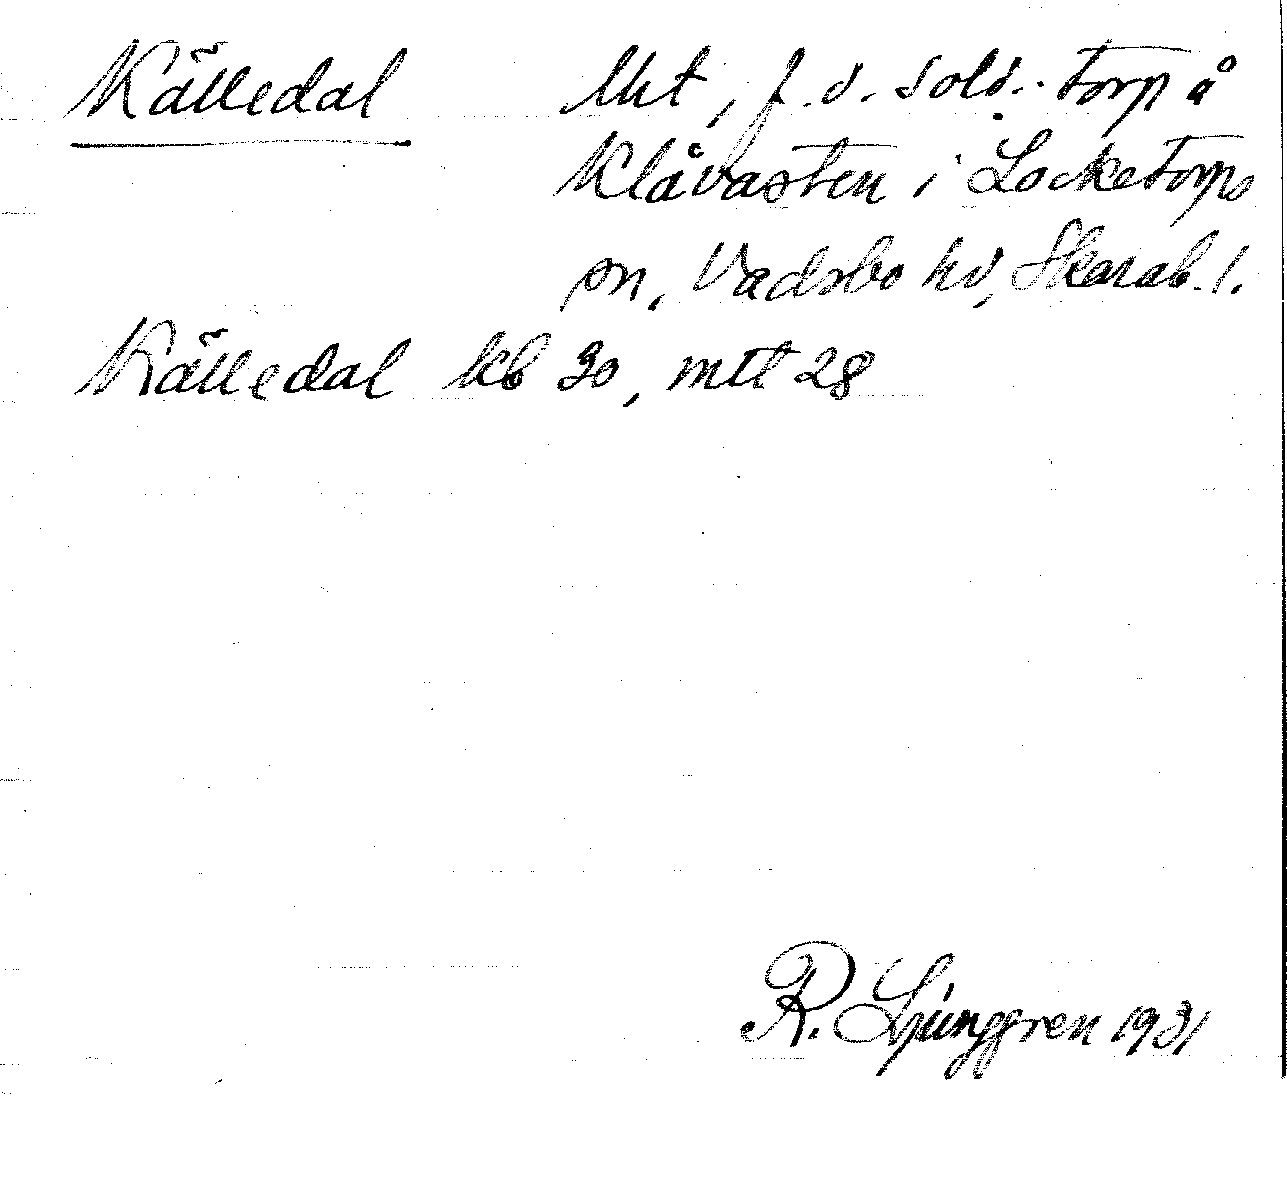 Källedal Lht, f. d. sold. torp å
Klåvasten i Locketorps
sn, Vadsbo hd, Skarab. l.
Källedal kb 30, mtl 28
R. Ljunggren 1931